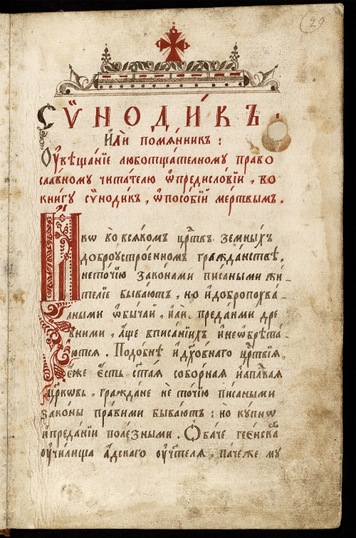 29
Сѵ̈нодїкъ.
Или помѧнникъ:
Оувѣщанїе люботщателному право
славному читателю ѿ предисловїи, во
книгу сѵ̈нодикъ, ѿ пособїи мертвымъ.
Ꙗкѡ во всѧкомъ цртвѣ земныхъ
доброустроенномъ гражданствѣ,
не точїю законами писаными жи
телїе бываютъ, но и добропохва
лными ѡбычаи, или преданми дре
вними аще в писанїихъ и не ѡбрѣта
ютсѧ. Подобнѣ и дховнаго цртвїѧ,
еже есть стаѧ соборнаѧ и апльскаѧ
црковь, граждане не точїю писаными
законы правими бываютъ: но купнѡ
и преданїи полезными. Обаче геенска
оучилища адскаго оучителѧ, паче же му